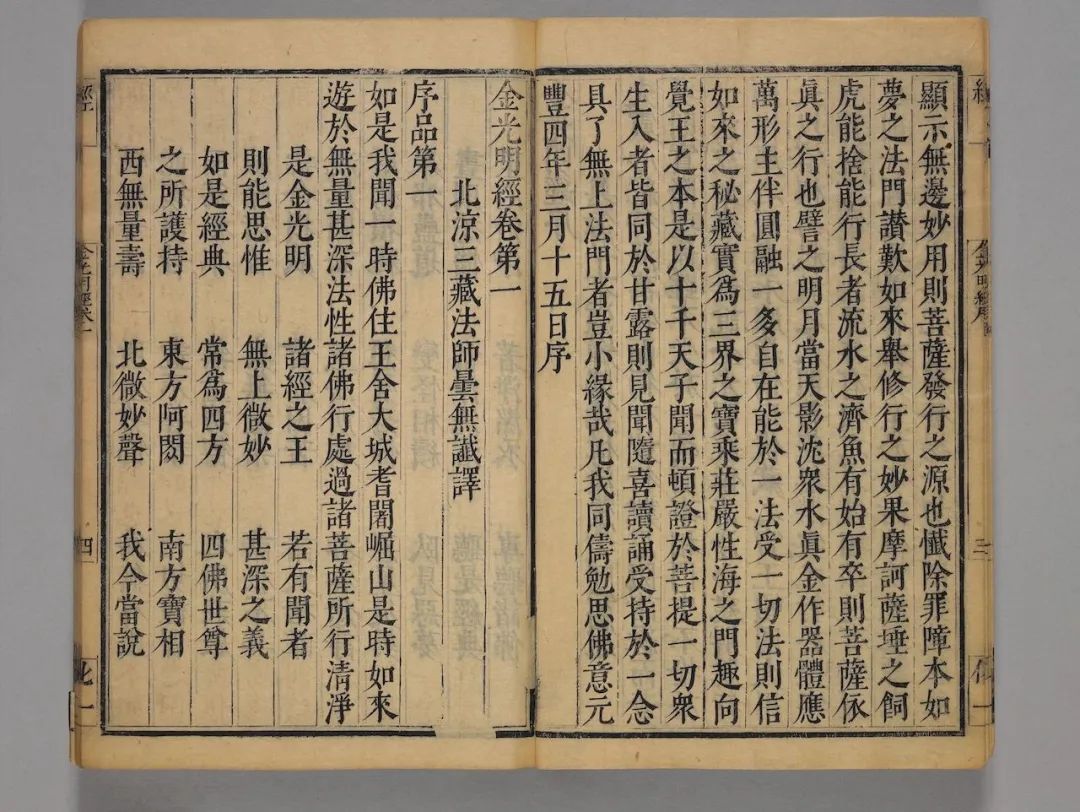 顯示無邊妙用則菩薩發行之源也懺除罪障本如
夢之法門讃歎如來舉修行之妙果摩訶薩埵之飼
虎能捨能行長者流水之濟魚有始有卒則菩薩依
眞之行也譬之明月當天影沈衆水眞金作器體應
萬形主伴圓融一多自在能於一法受一切法則信
如來之秘藏實爲三界之寶乘莊嚴性海之門趣向
覺王之本是以十千天子聞而頓證於菩提一切衆
生入者皆同於甘露則見聞隨喜讀誦受持於一念
具了無上法門者豈小緣哉凡我同儔勉思佛意元
豐四年三月十五日序
金光明經卷第一
北涼三藏法師曇無讖譯
序品第一
如是我聞一時佛住王舍大城耆闍崛山是時如來
遊於無量甚深法性諸佛行處過諸菩薩所行清淨
是金光明 諸經之王 若有聞者
則能思惟 無上微妙 甚深之義
如是經典 常爲四方 四佛世尊
之所護持 東方阿閦 南方寶相
西無量壽 北微妙聲 我今當說
經
金光明經卷一
四